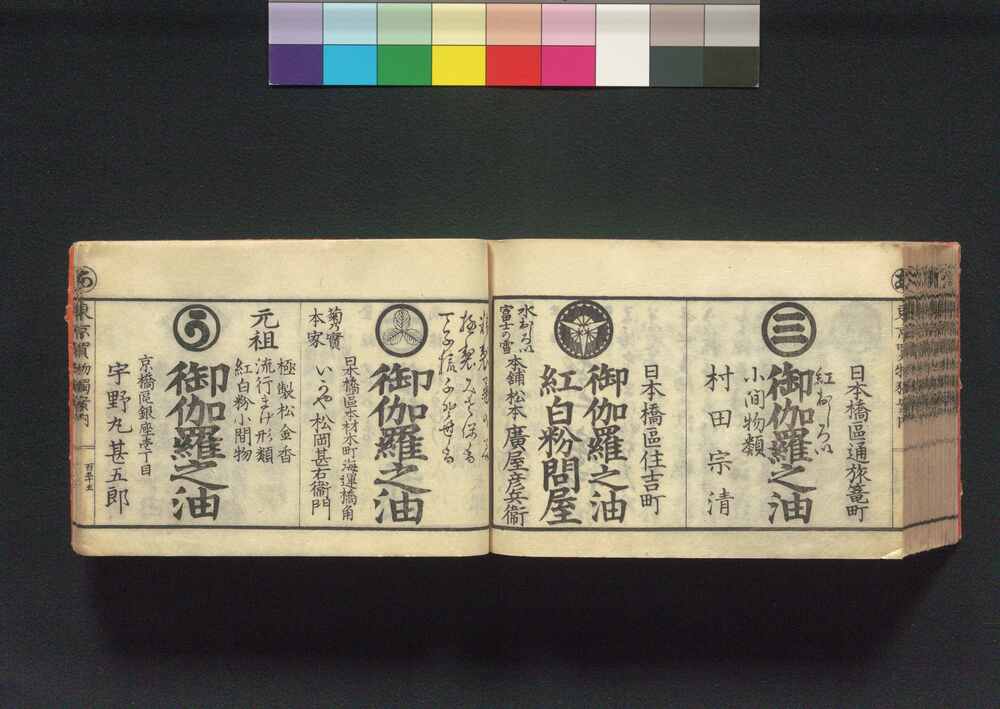 日本橋區通旅篭町
紅おしろい
三
御伽羅之油
小間物類
村田宗清
日本橋區住吉町
御伽羅之油
紅白粉問屋
水おしろい
富士の雪
本舗 松本 廣屋彦兵衞
御伽羅之油
日本橋區本材木町海運橋角
菊乃寶
本家
いかや 松岡甚右衞門
う
御伽羅之油
元祖
極製松金香
流行まげ形類
紅白粉小間物
京橋區銀座壱丁目
宇野丸甚五郎
東京買物獨案内
百五十五